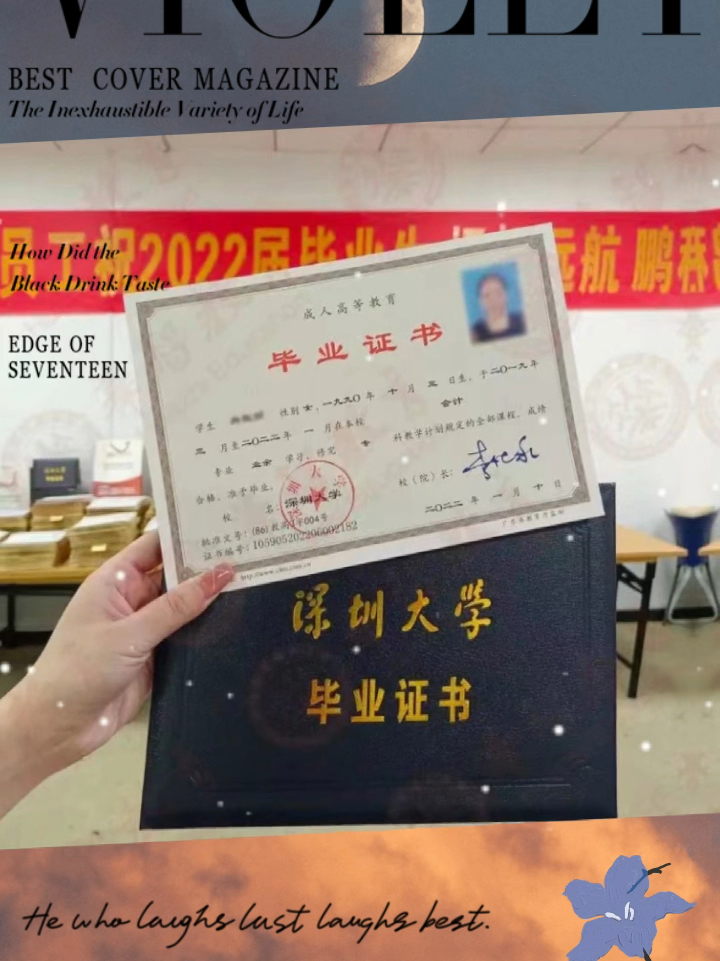 VIOLET
BEST COVER MAGAZINE
The Inexhaustible Variety of Life
员工祝2022届毕业生 远航 鹏
How Did the
Black Drink Taste
EDGE OF
SEVENTEEN
成人高等教育
毕业证书
学生 性别 女，一九九〇年 十 月 三 日生，于二〇一九年
三 月至二〇二二年 一 月在本校 会计
专业 业余 学习，修完 专 科教学计划规定的全部课程，成绩
合格，准予毕业。
校 名：深圳大学 校（院）长：
批准文号：(80)教高1字004号 二〇二二年 一 月 十 日
证书编号：105905202206002182
http://www.chsi.com.cn
广东省教育厅监制
深圳大学
毕业证书
He who laughs last laughs best.